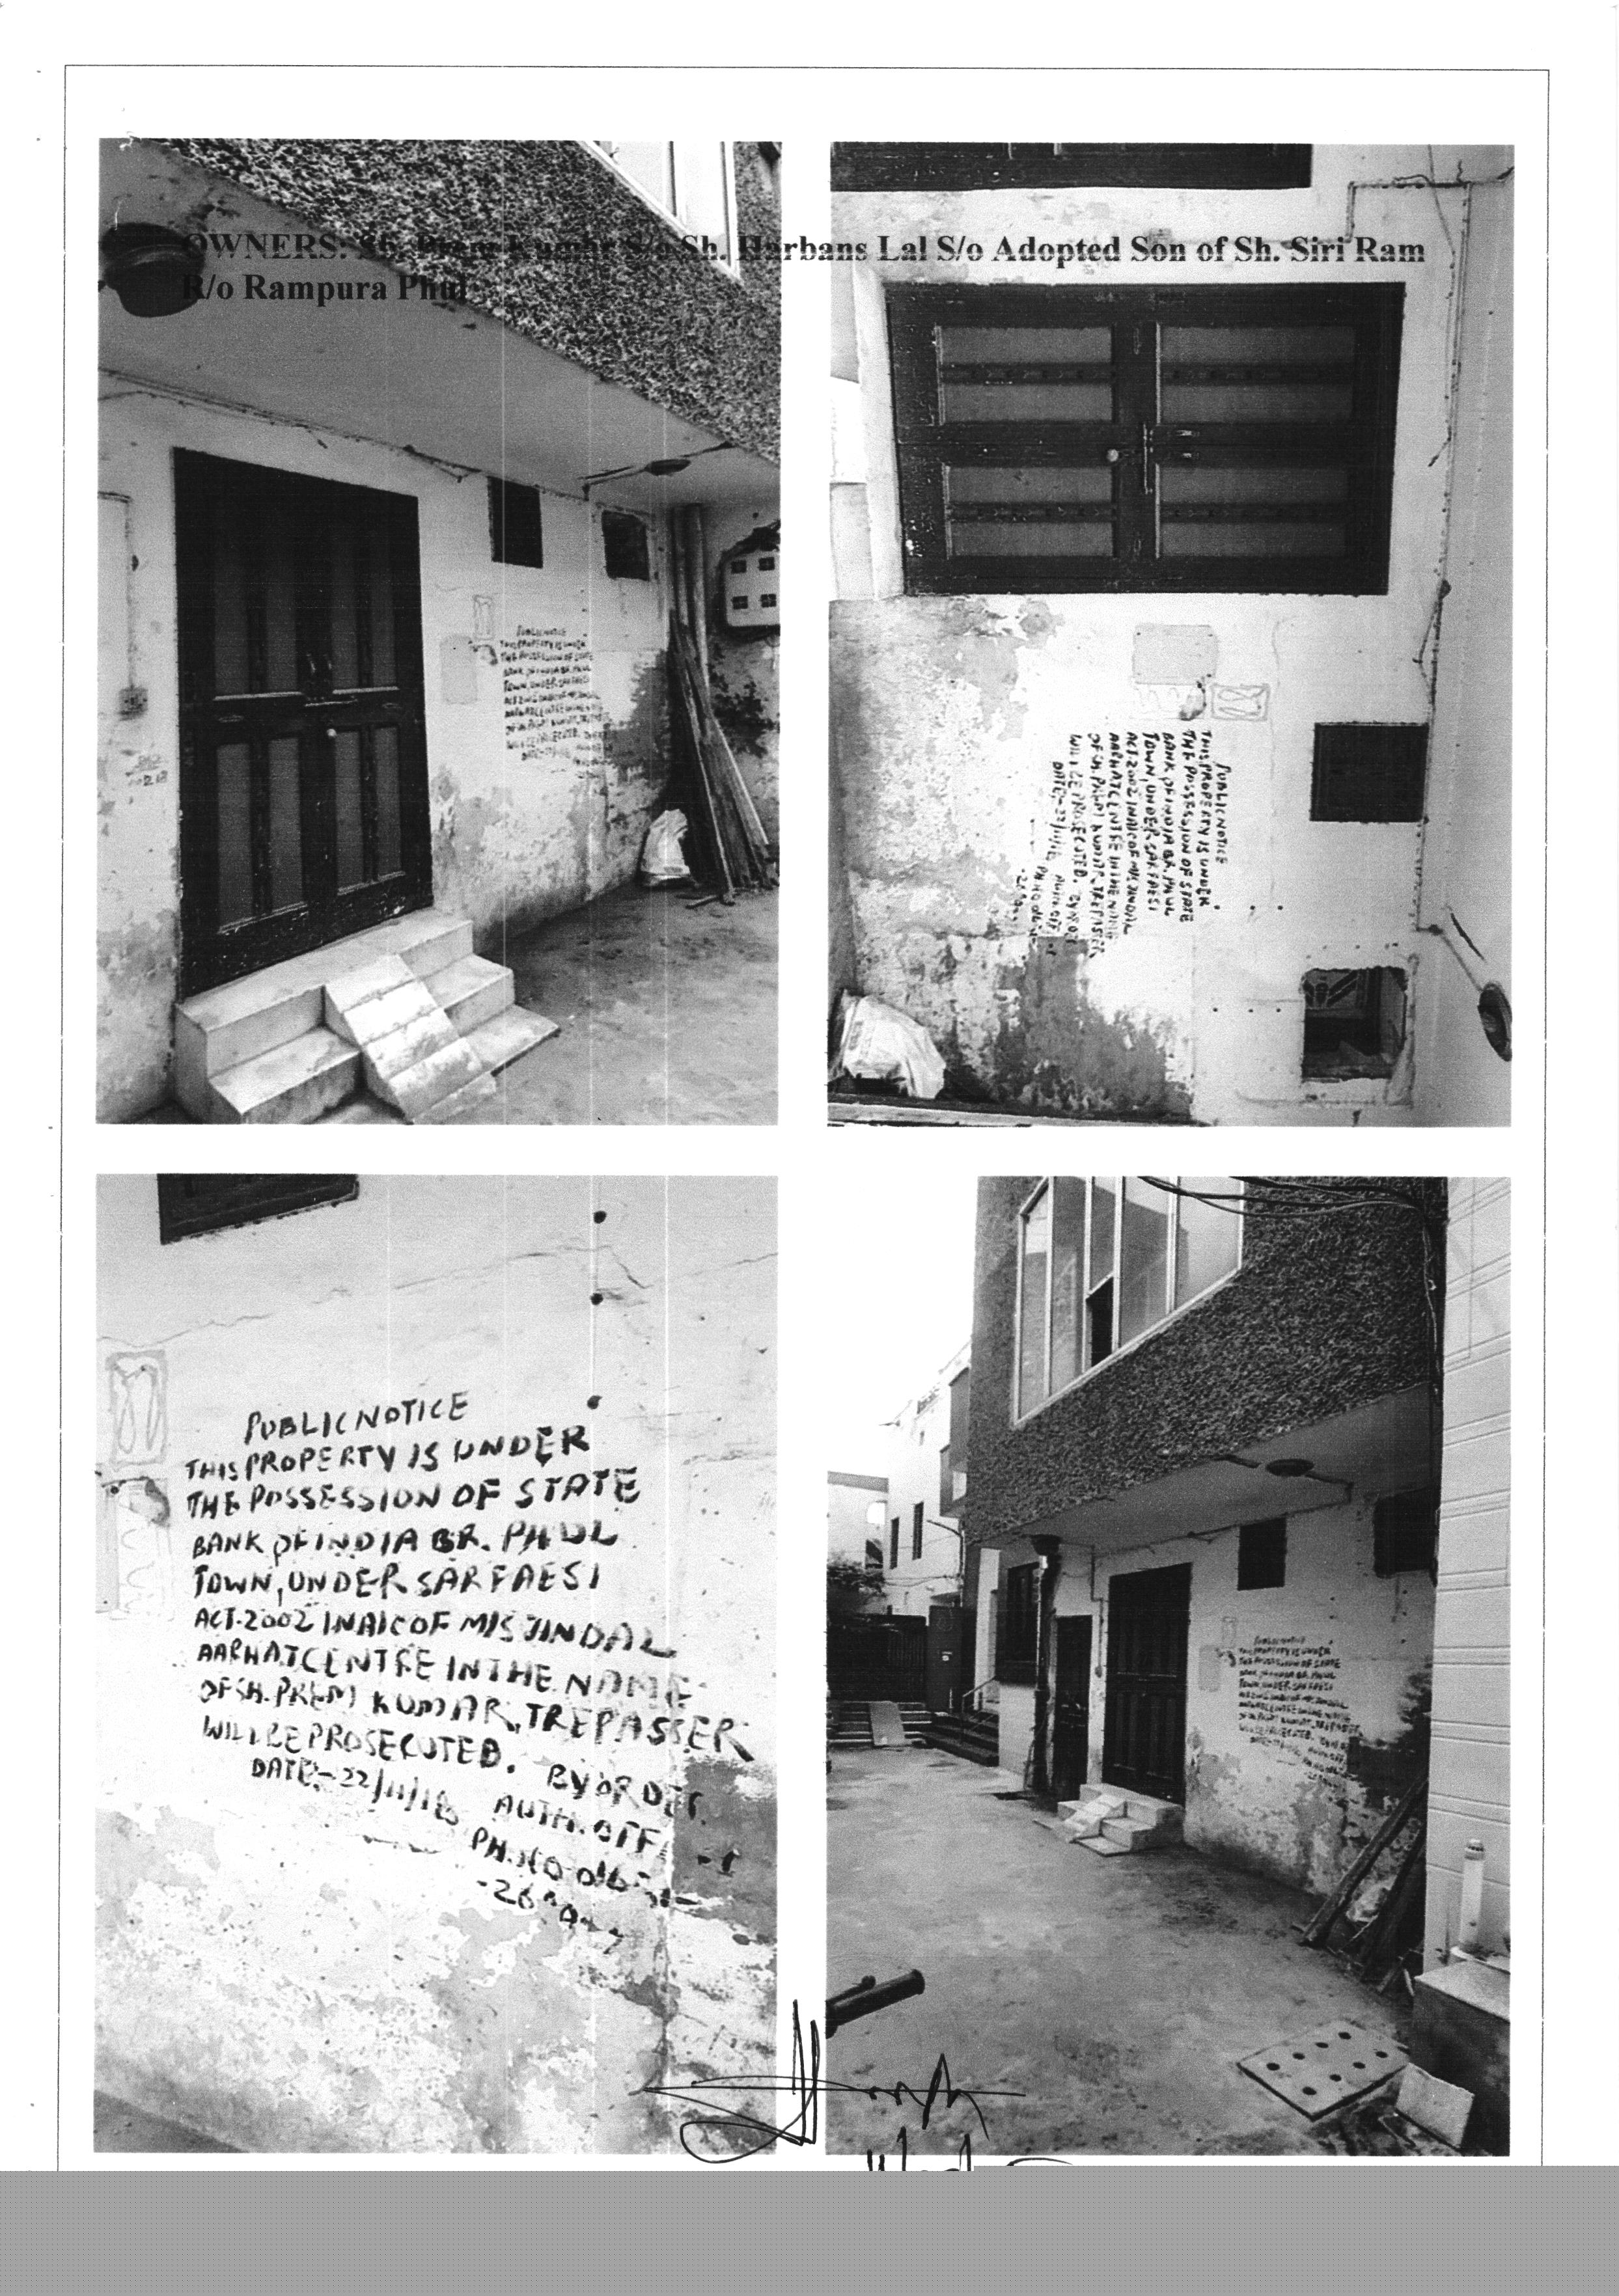 OWNERS: Sh. Prem Kumar S/o Sh. Harbans Lal S/o Adopted Son of Sh. Siri Ram
R/o Rampura Phul
PUBLIC NOTICE
THIS PROPERTY IS UNDER
THE POSSESSION OF STATE
BANK OF INDIA BR. PHUL
TOWN, UNDER SARFAESI
ACT-2002 IN A/C OF M/S JINDAL
AARHAT CENTRE IN THE NAME
OF SH. PREM KUMAR, TREPASSER
WILL BE PROSECUTED. BY ORDER
DATE:-22/11/18 AUTH. OFF
PH. NO